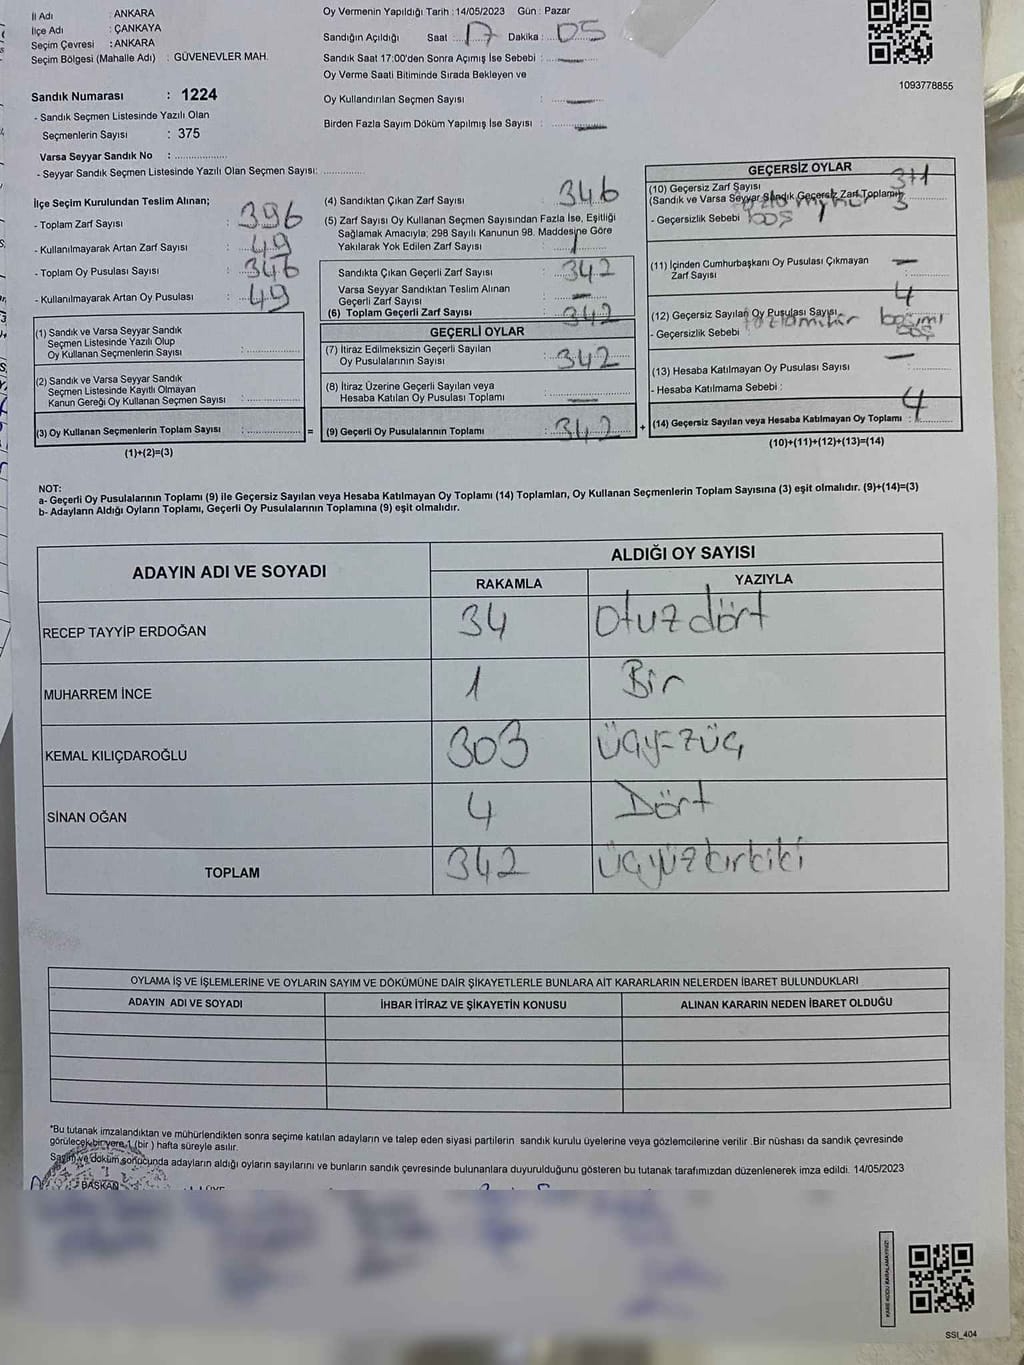 İl Adı : ANKARA
İlçe Adı : ÇANKAYA
Seçim Çevresi : ANKARA
Seçim Bölgesi (Mahalle Adı) : GÜVENEVLER MAH.
Sandık Numarası : 1224
- Sandık Seçmen Listesinde Yazılı Olan
Seçmenlerin Sayısı : 375
Varsa Seyyar Sandık No :
- Seyyar Sandık Seçmen Listesinde Yazılı Olan Seçmen Sayısı:
Oy Vermenin Yapıldığı Tarih : 14/05/2023 Gün : Pazar
Sandığın Açıldığı Saat : 17 Dakika : 05
Sandık Saat 17:00'den Sonra Açımış İse Sebebi : —
Oy Verme Saati Bitiminde Sırada Bekleyen ve
Oy Kullandırılan Seçmen Sayısı : —
Birden Fazla Sayım Döküm Yapılmış İse Sayısı : —
1093778855
İlçe Seçim Kurulundan Teslim Alınan;
- Toplam Zarf Sayısı : 396
- Kullanılmayarak Artan Zarf Sayısı : 49
- Toplam Oy Pusulası Sayısı : 346
- Kullanılmayarak Artan Oy Pusulası : 49
(1) Sandık ve Varsa Seyyar Sandık
Seçmen Listesinde Yazılı Olup
Oy Kullanan Seçmenlerin Sayısı :
(2) Sandık ve Varsa Seyyar Sandık
Seçmen Listesinde Kayıtlı Olmayan
Kanun Gereği Oy Kullanan Seçmen Sayısı :
(3) Oy Kullanan Seçmenlerin Toplam Sayısı : =
(1)+(2)=(3)
(4) Sandıktan Çıkan Zarf Sayısı : 346
(5) Zarf Sayısı Oy Kullanan Seçmen Sayısından Fazla İse, Eşitliği
Sağlamak Amacıyla; 298 Sayılı Kanunun 98. Maddesine Göre
Yakılarak Yok Edilen Zarf Sayısı :
Sandıkta Çıkan Geçerli Zarf Sayısı : 342
Varsa Seyyar Sandıktan Teslim Alınan
Geçerli Zarf Sayısı : —
(6) Toplam Geçerli Zarf Sayısı : 342
GEÇERLİ OYLAR
(7) İtiraz Edilmeksizin Geçerli Sayılan
Oy Pusulalarının Sayısı : 342
(8) İtiraz Üzerine Geçerli Sayılan veya
Hesaba Katılan Oy Pusulası Toplamı : —
(9) Geçerli Oy Pusulalarının Toplamı : 342 +
GEÇERSİZ OYLAR
(10) Geçersiz Zarf Sayısı 3+1
(Sandık ve Varsa Seyyar Sandık Geçersiz Zarf Toplamı): 3
- Geçersizlik Sebebi boş 1
(11) İçinden Cumhurbaşkanı Oy Pusulası Çıkmayan —
Zarf Sayısı :
4
(12) Geçersiz Sayılan Oy Pusulası Sayısı
- Geçersizlik Sebebi :
(13) Hesaba Katılmayan Oy Pusulası Sayısı : —
- Hesaba Katılmama Sebebi :
(14) Geçersiz Sayılan veya Hesaba Katılmayan Oy Toplamı : 4
(10)+(11)+(12)+(13)=(14)
NOT:
a- Geçerli Oy Pusulalarının Toplamı (9) ile Geçersiz Sayılan veya Hesaba Katılmayan Oy Toplamı (14) Toplamları, Oy Kullanan Seçmenlerin Toplam Sayısına (3) eşit olmalıdır. (9)+(14)=(3)
b- Adayların Aldığı Oyların Toplamı, Geçerli Oy Pusulalarının Toplamına (9) eşit olmalıdır.
ADAYIN ADI VE SOYADI ALDIĞI OY SAYISI
RAKAMLA YAZIYLA
RECEP TAYYİP ERDOĞAN 34 Otuzdört
MUHARREM İNCE 1 Bir
KEMAL KILIÇDAROĞLU 303 üçyüzüç
SİNAN OĞAN 4 Dört
TOPLAM 342 üçyüzkırkiki
OYLAMA İŞ VE İŞLEMLERİNE VE OYLARIN SAYIM VE DÖKÜMÜNE DAİR ŞİKAYETLERLE BUNLARA AİT KARARLARIN NELERDEN İBARET BULUNDUKLARI
ADAYIN ADI VE SOYADI İHBAR İTİRAZ VE ŞİKAYETİN KONUSU ALINAN KARARIN NEDEN İBARET OLDUĞU
"Bu tutanak imzalandıktan ve mühürlendikten sonra seçime katılan adayların ve talep eden siyasi partilerin sandık kurulu üyelerine veya gözlemcilerine verilir .Bir nüshası da sandık çevresinde
görülecek bir yere 1 (bir ) hafta süreyle asılır.
Sayım ve döküm sonucunda adayların aldığı oyların sayılarını ve bunların sandık çevresinde bulunanlara duyurulduğunu gösteren bu tutanak tarafımızdan düzenlenerek imza edildi. 14/05/2023
BAŞKAN
KARE KODU KARALAMAYINIZ!
SSİ_404